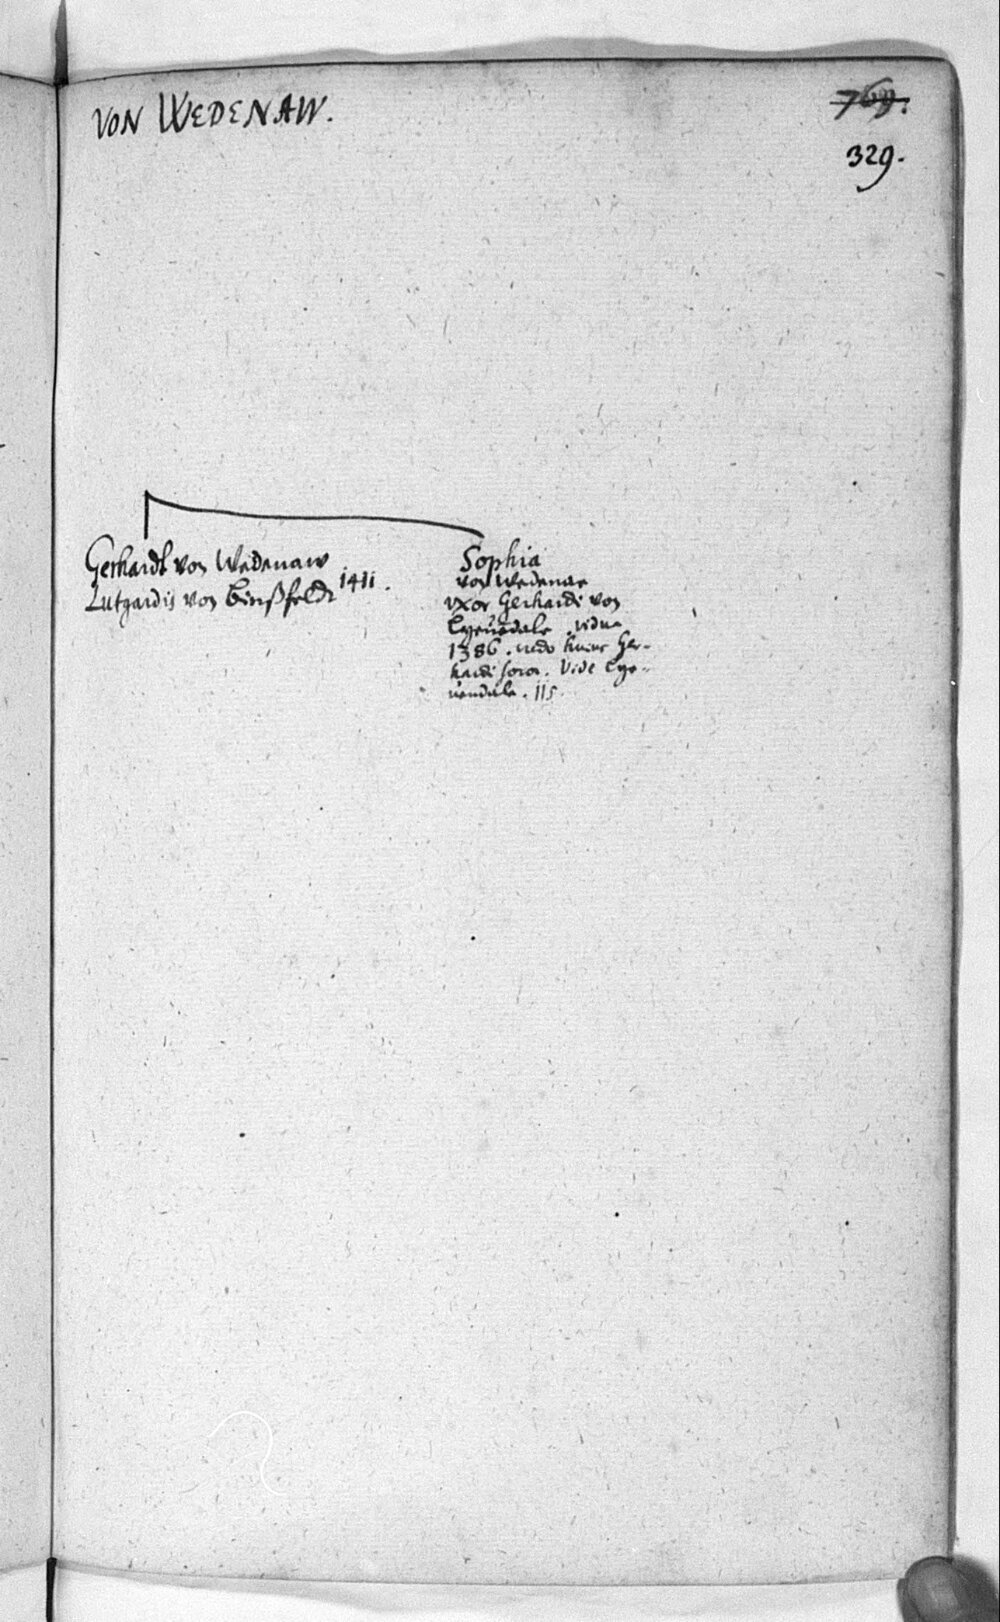 VON WEDENAW.
769.
329.
Gerhardt von Wedenaw
Lutgardis von Binßfeldt 1411.
Sophia
von Wedenaw
vxor Gerhardi von
vidua
1386. huius Ger-
hardi soror. Vide Eye-
uendale. 115.